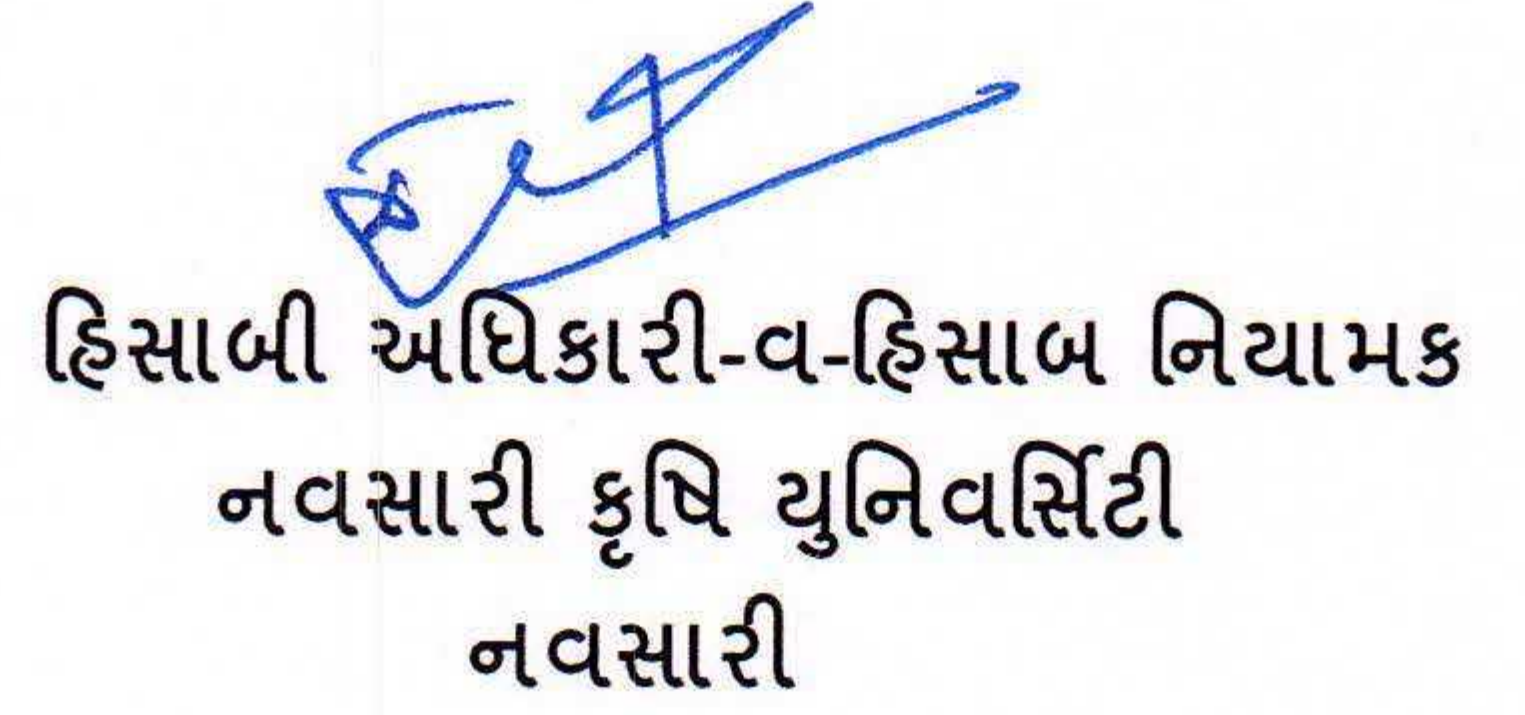 હિસાબી અધિકારી-વ-હિસાબ નિયામક
નવસારી કૃષિ યુનિવર્સિટી
નવસારી